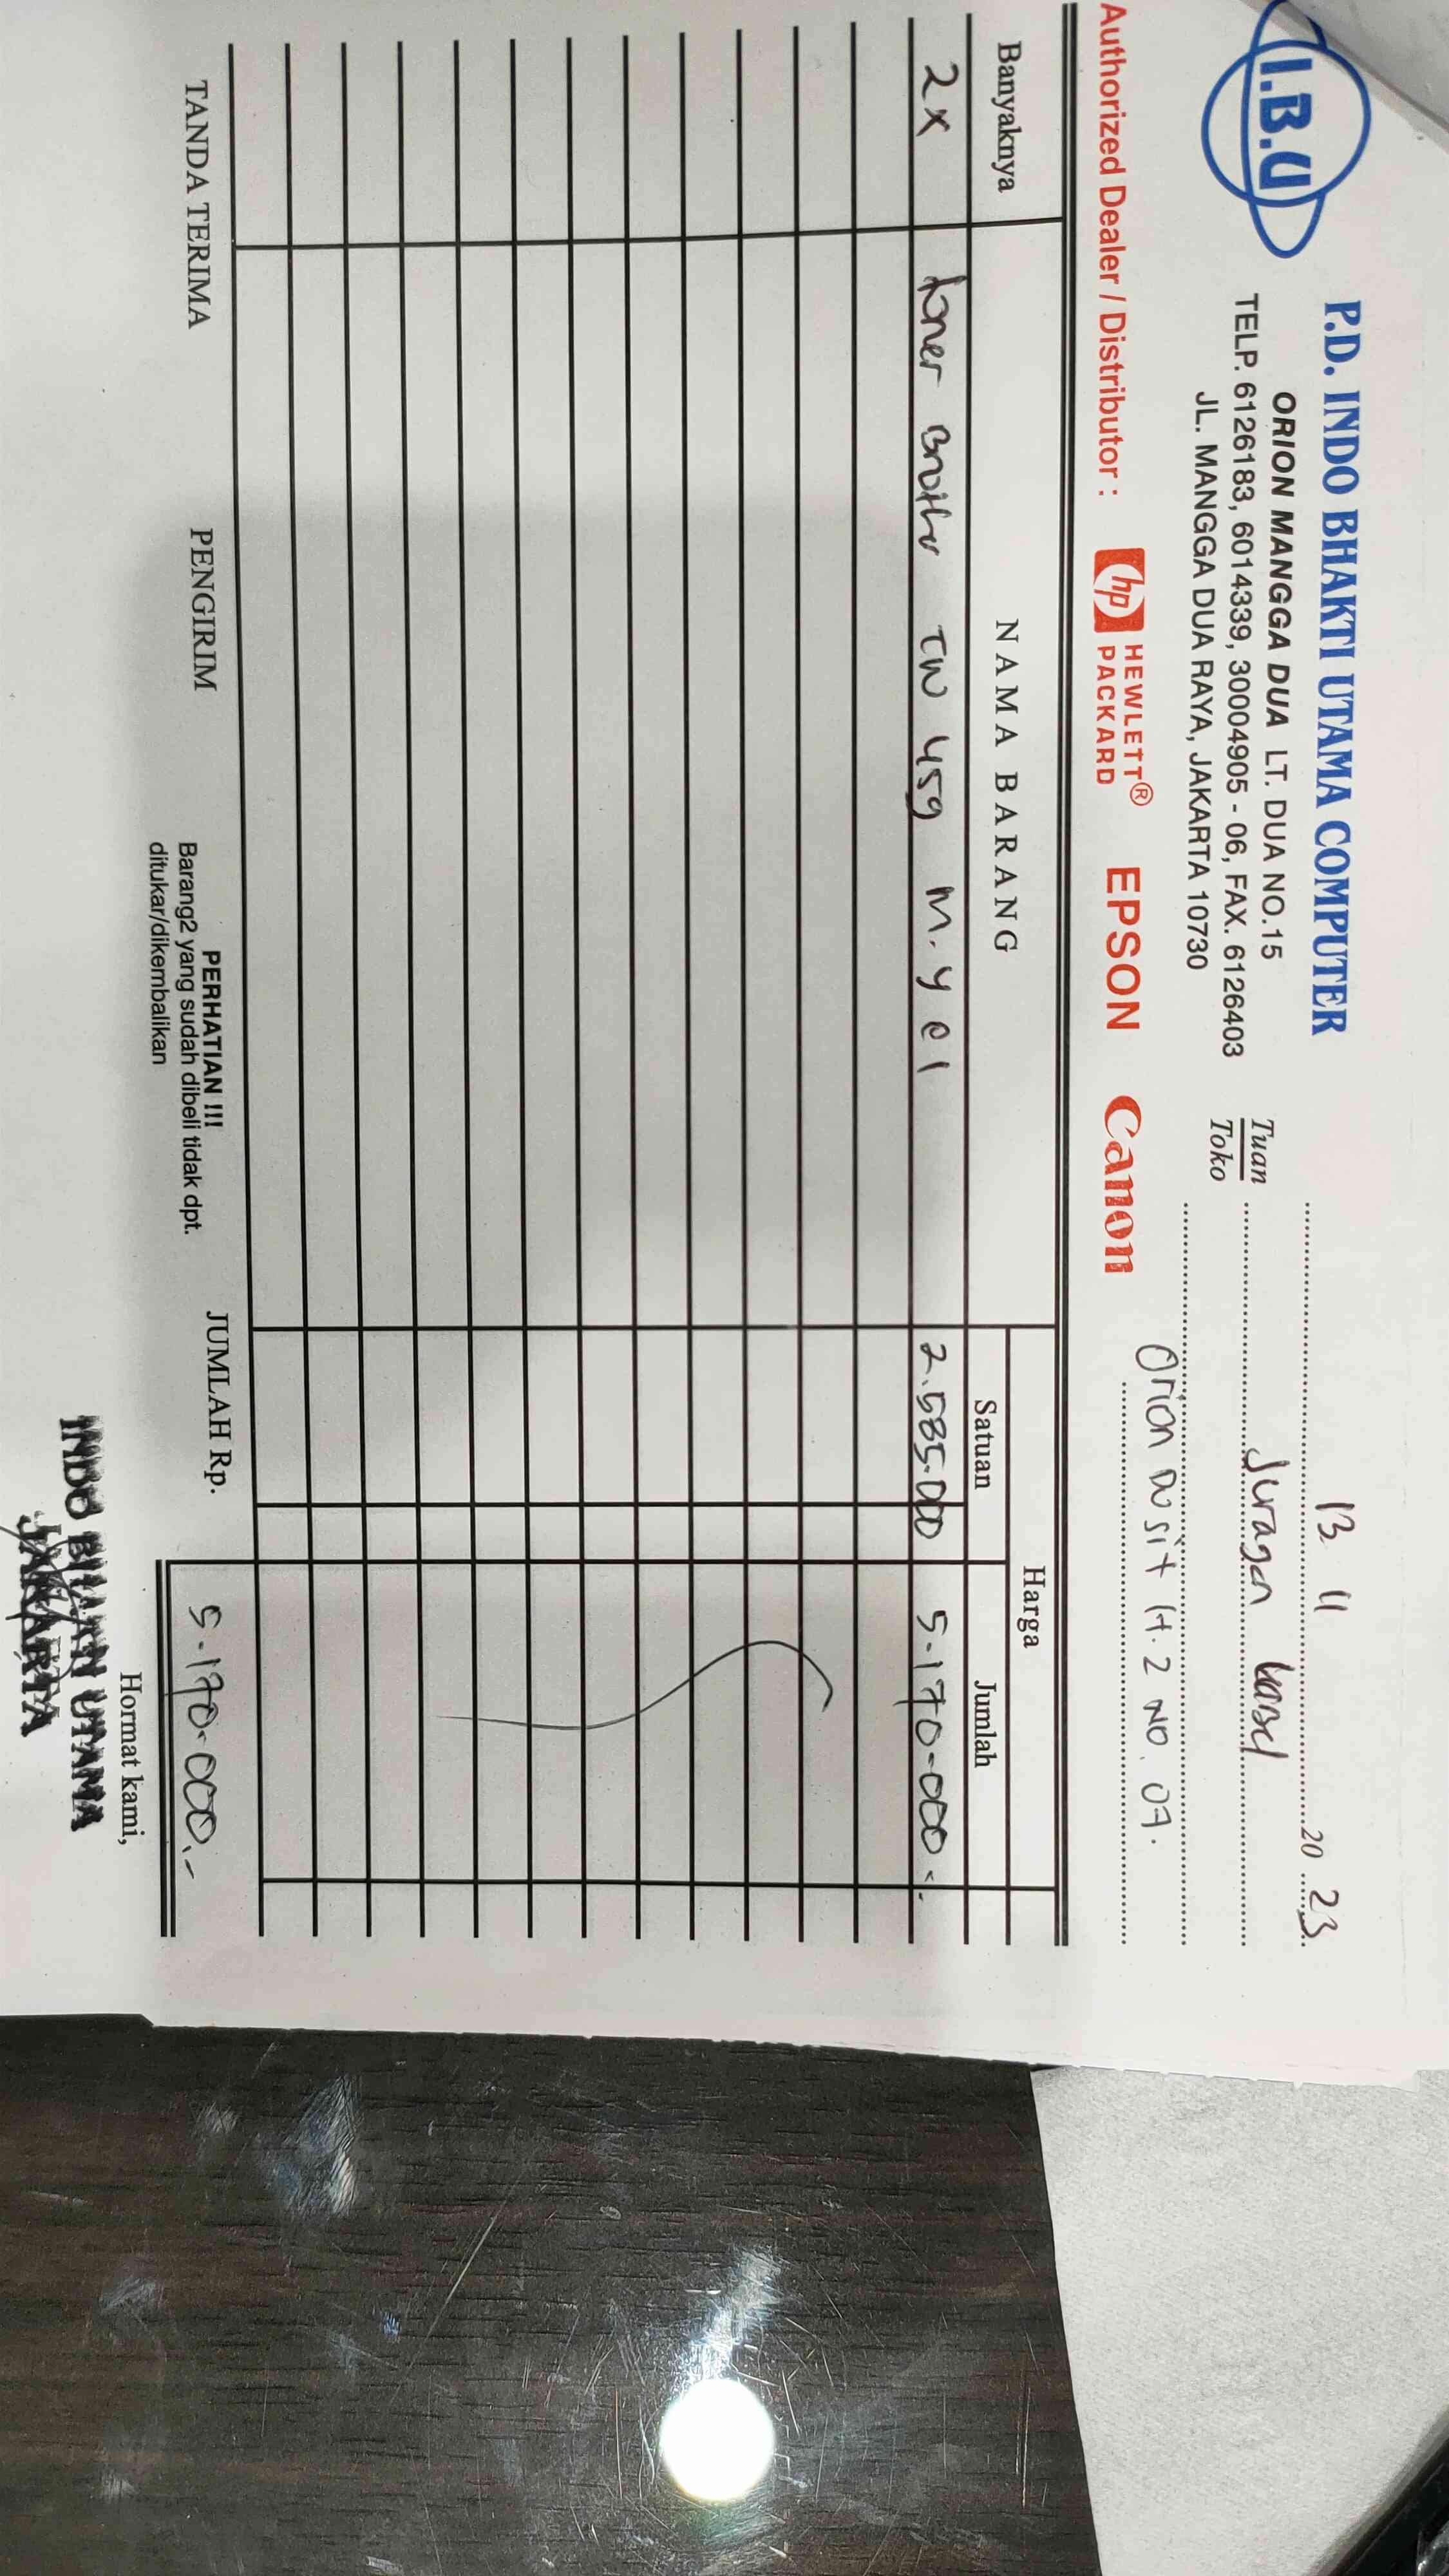 I.B.U
P.D. INDO BHAKTI UTAMA COMPUTER
ORION MANGGA DUA LT. DUA NO.15
TELP. 6126183, 6014339, 30004905 - 06, FAX. 6126403
JL. MANGGA DUA RAYA, JAKARTA 10730
13 11 20 23
Tuan
Toko
Juragan
Orion Dusit lt. 2 NO. 07.
Authorized Dealer / Distributor : hp HEWLETT® PACKARD EPSON Canon
Banyaknya NAMA BARANG Harga
Satuan Jumlah
2x toner Brother TN 459 M. Y C 1 2.585.000 5.170.000.-
TANDA TERIMA PENGIRIM JUMLAH Rp. 5.170.000.-
PERHATIAN !!!
Barang2 yang sudah dibeli tidak dpt.
ditukar/dikembalikan
Hormat kami,
UTAMA
JAKARTA